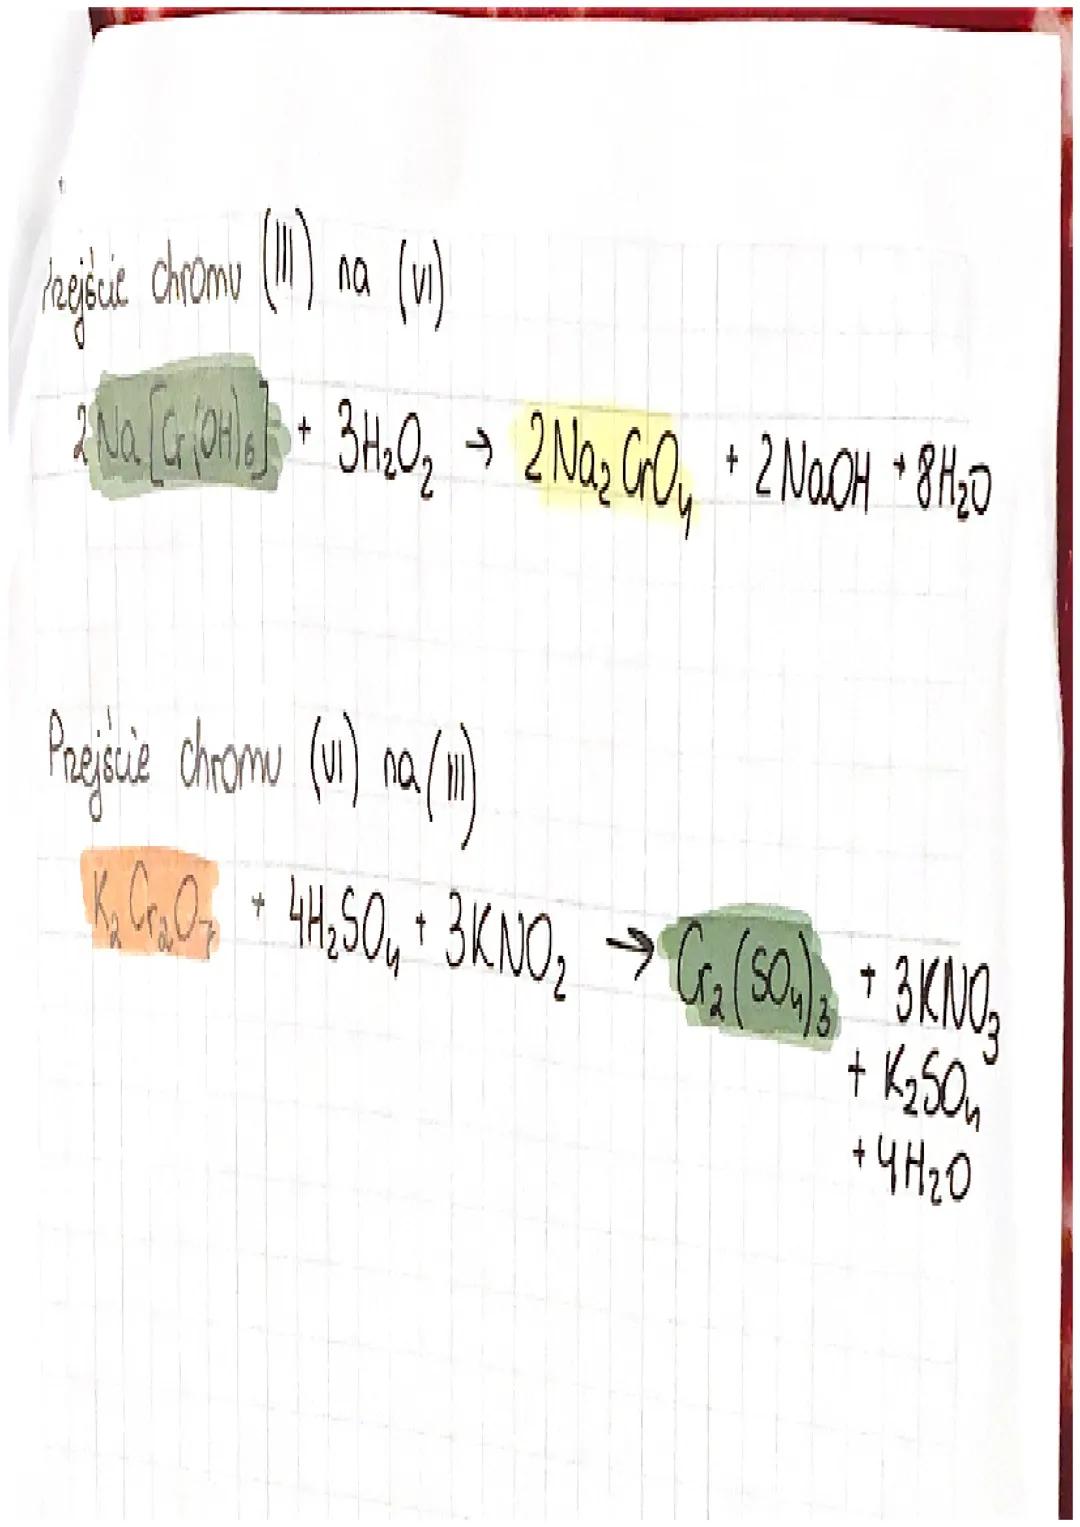 Przejście chromu (III) na (VI)
2 Na [Cr(OH)₆] + 3H₂O₂ → 2 Na₂CrO₄ + 2 NaOH + 8H₂O
Przejście chromu (VI) na (III)
K₂Cr₂O₇ + 4H₂SO₄ + 3KNO₂ → Cr₂(SO₄)₃ + 3KNO₃
+ K₂SO₄
+ 4H₂O